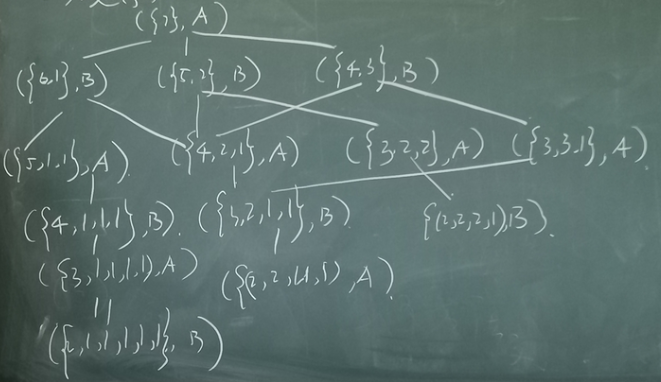 ({7}, A)
({6,1}, B) ({5,2}, B) ({4,3}, B)
({5,1,1}, A). ({4,2,1}, A) ({3,2,2}, A) ({3,3,1}, A).
({4,1,1,1}, B). ({3,2,1,1}, B). {(2,2,2,1),B).
({3,1,1,1,1),A) ({2,2,1,1,1), A).
({2,1,1,1,1,1}, B)